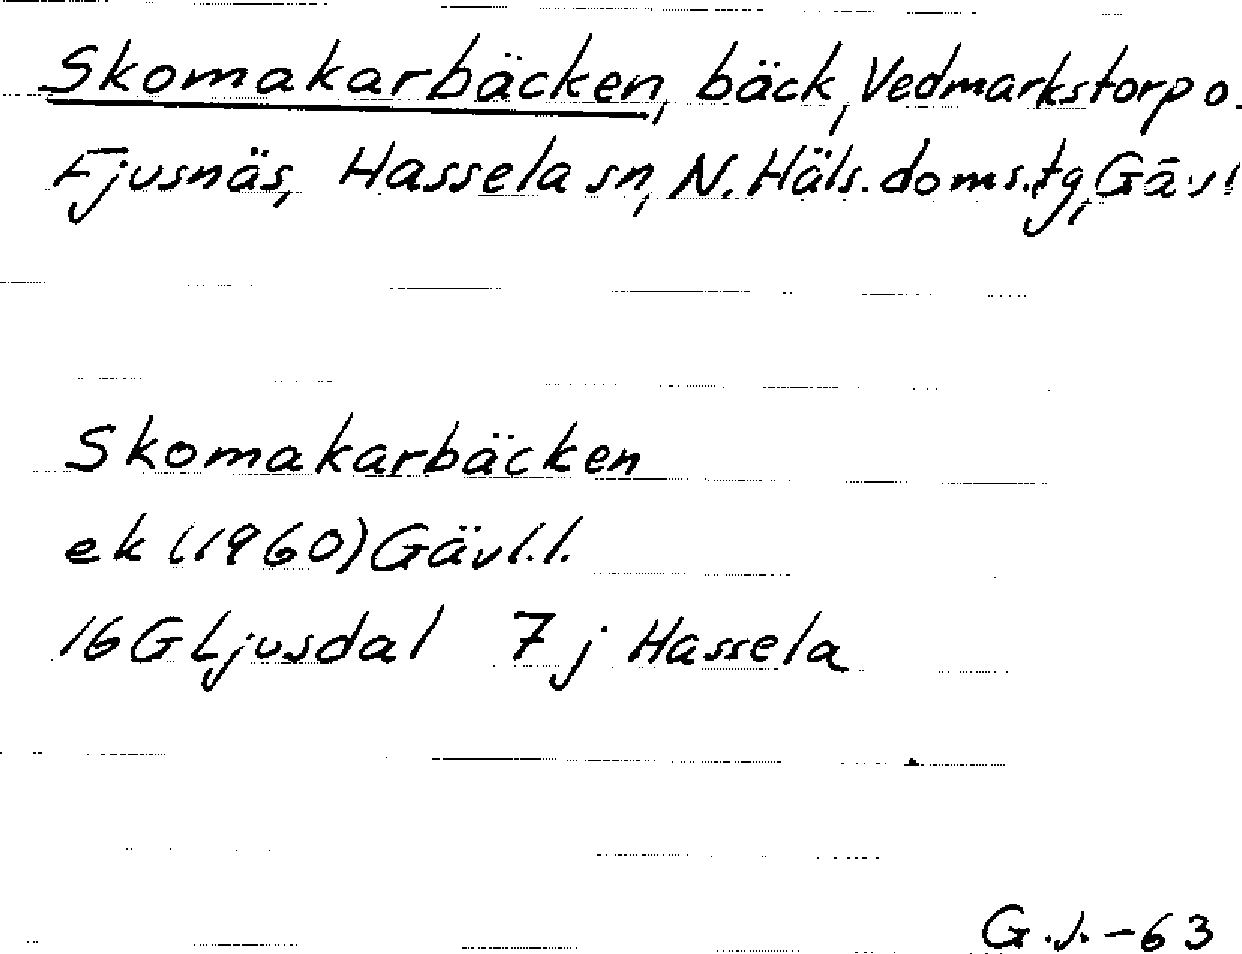 Skomakarbäcken, bäck, Vedmarkstorp o.
Fjusnäs, Hassela sn, N. Häls. doms.tg, Gävl
Skomakarbäcken
ek (1960) Gävl.l.
16G Ljusdal 7j Hassela
G.J.-63